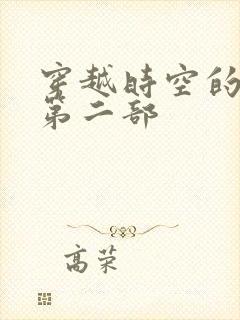 穿越時空的
第二部
高荣